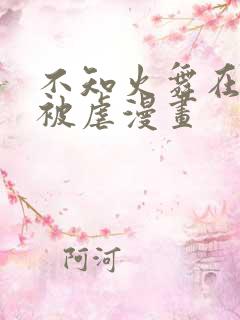 不知火舞在
被虐漫畫
阿河